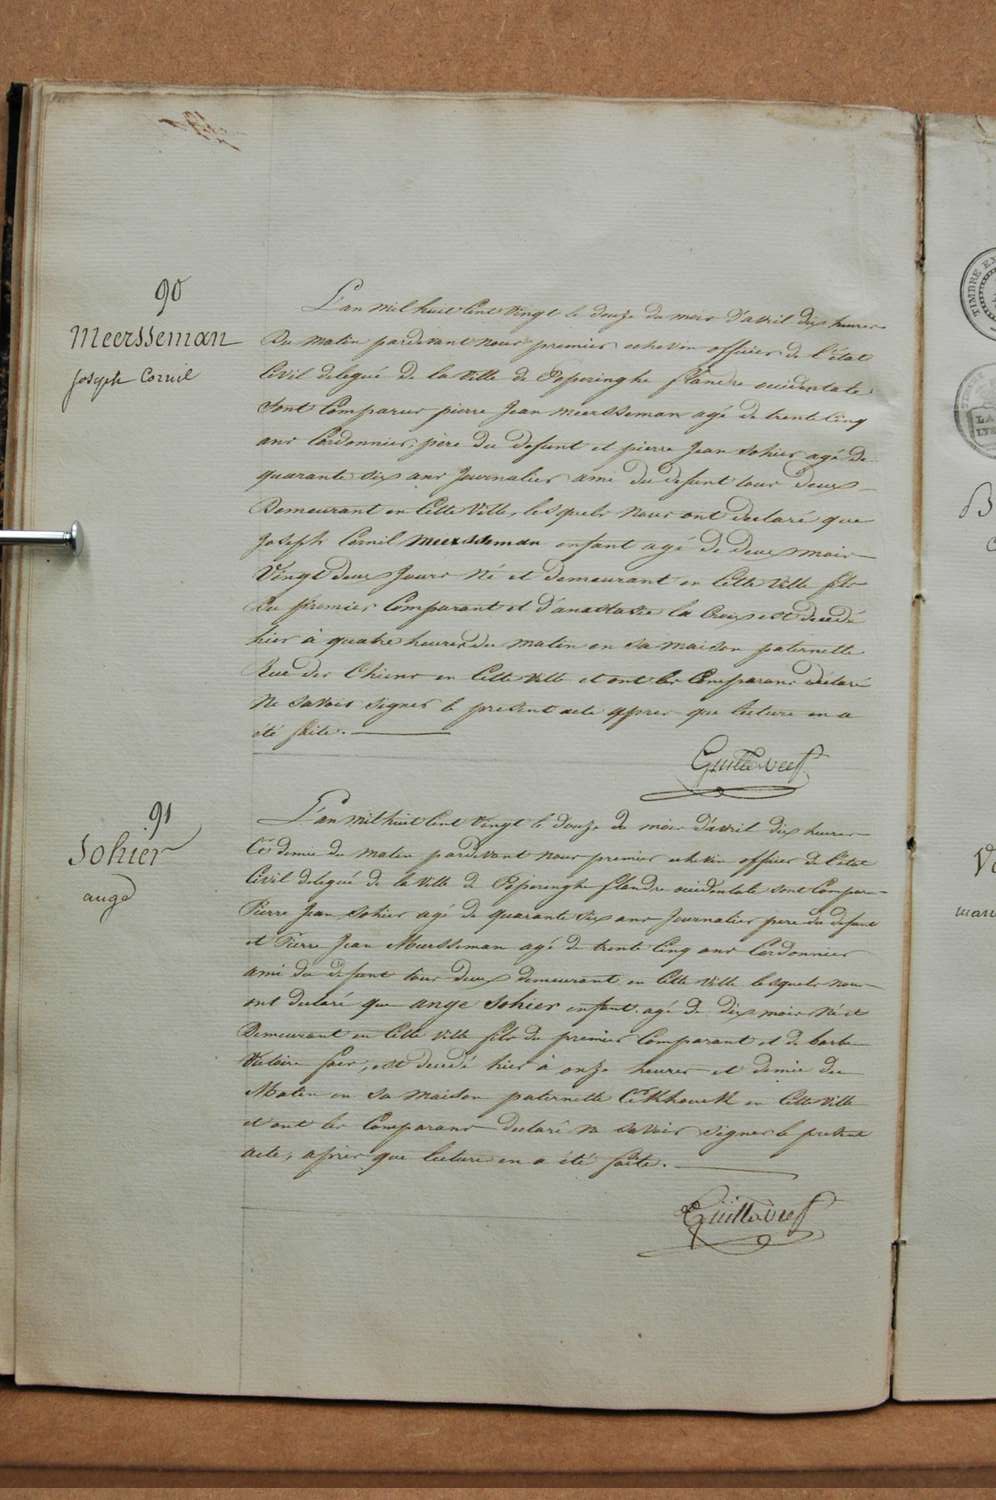 90
Meersseman
Joseph Cornil
L'an mil huit cent vingt le douze du mois d'avril dix heures
du matin pardevant nous premier echevin officier de l'état
Civil delegué de la ville de Poperinghe flandre occidentale
sont Comparus pierre Jean meersseman agé de trente Cinq
ans Cordonnier, père du defunt et pierre Jean Sohier agé de
quarante Six ans Journalier ami du defunt tous deux
Demeurant en Cette Ville, lesquels nous ont declaré que
Joseph Cornil Meersseman enfant agé de deux mois
Vingt deux Jours Né et demeurant en Cette Ville fils
du premier Comparant et d'anastasie la Croix est decedé
hier à quatre heures du matin en sa maison paternelle
Rue des Chiens en Cette Ville et ont les Comparans déclaré
Ne savoir signer le present acte apres que lecture en a
été faite.
Guillaume
91
Sohier
ange
L'an mil huit Cent Vingt le douze du mois d'avril dix heures
et demie du matin pardevant nous premier echevin officier de l'état
Civil delegué de la Ville de Poperinghe flandre occidentale sont Compar
Pierre Jean Sohier agé de quarante Six ans Journalier pere du defunt
et Pierre Jean Meersseman agé de trente Cinq ans Cordonnier
ami du defunt tous deux demeurant en Cette Ville lesquels nous
ont declaré que ange Sohier enfant agé de dix mois Né et
Demeurant en Cette Ville fils du premier Comparant et de barbe
Victoire, est decedé hier à onze heures et demie du
Matin en sa maison paternelle en Cette Ville
et ont les Comparans declaré ne savoir signer le present
acte, apres que lecture en a été faite.